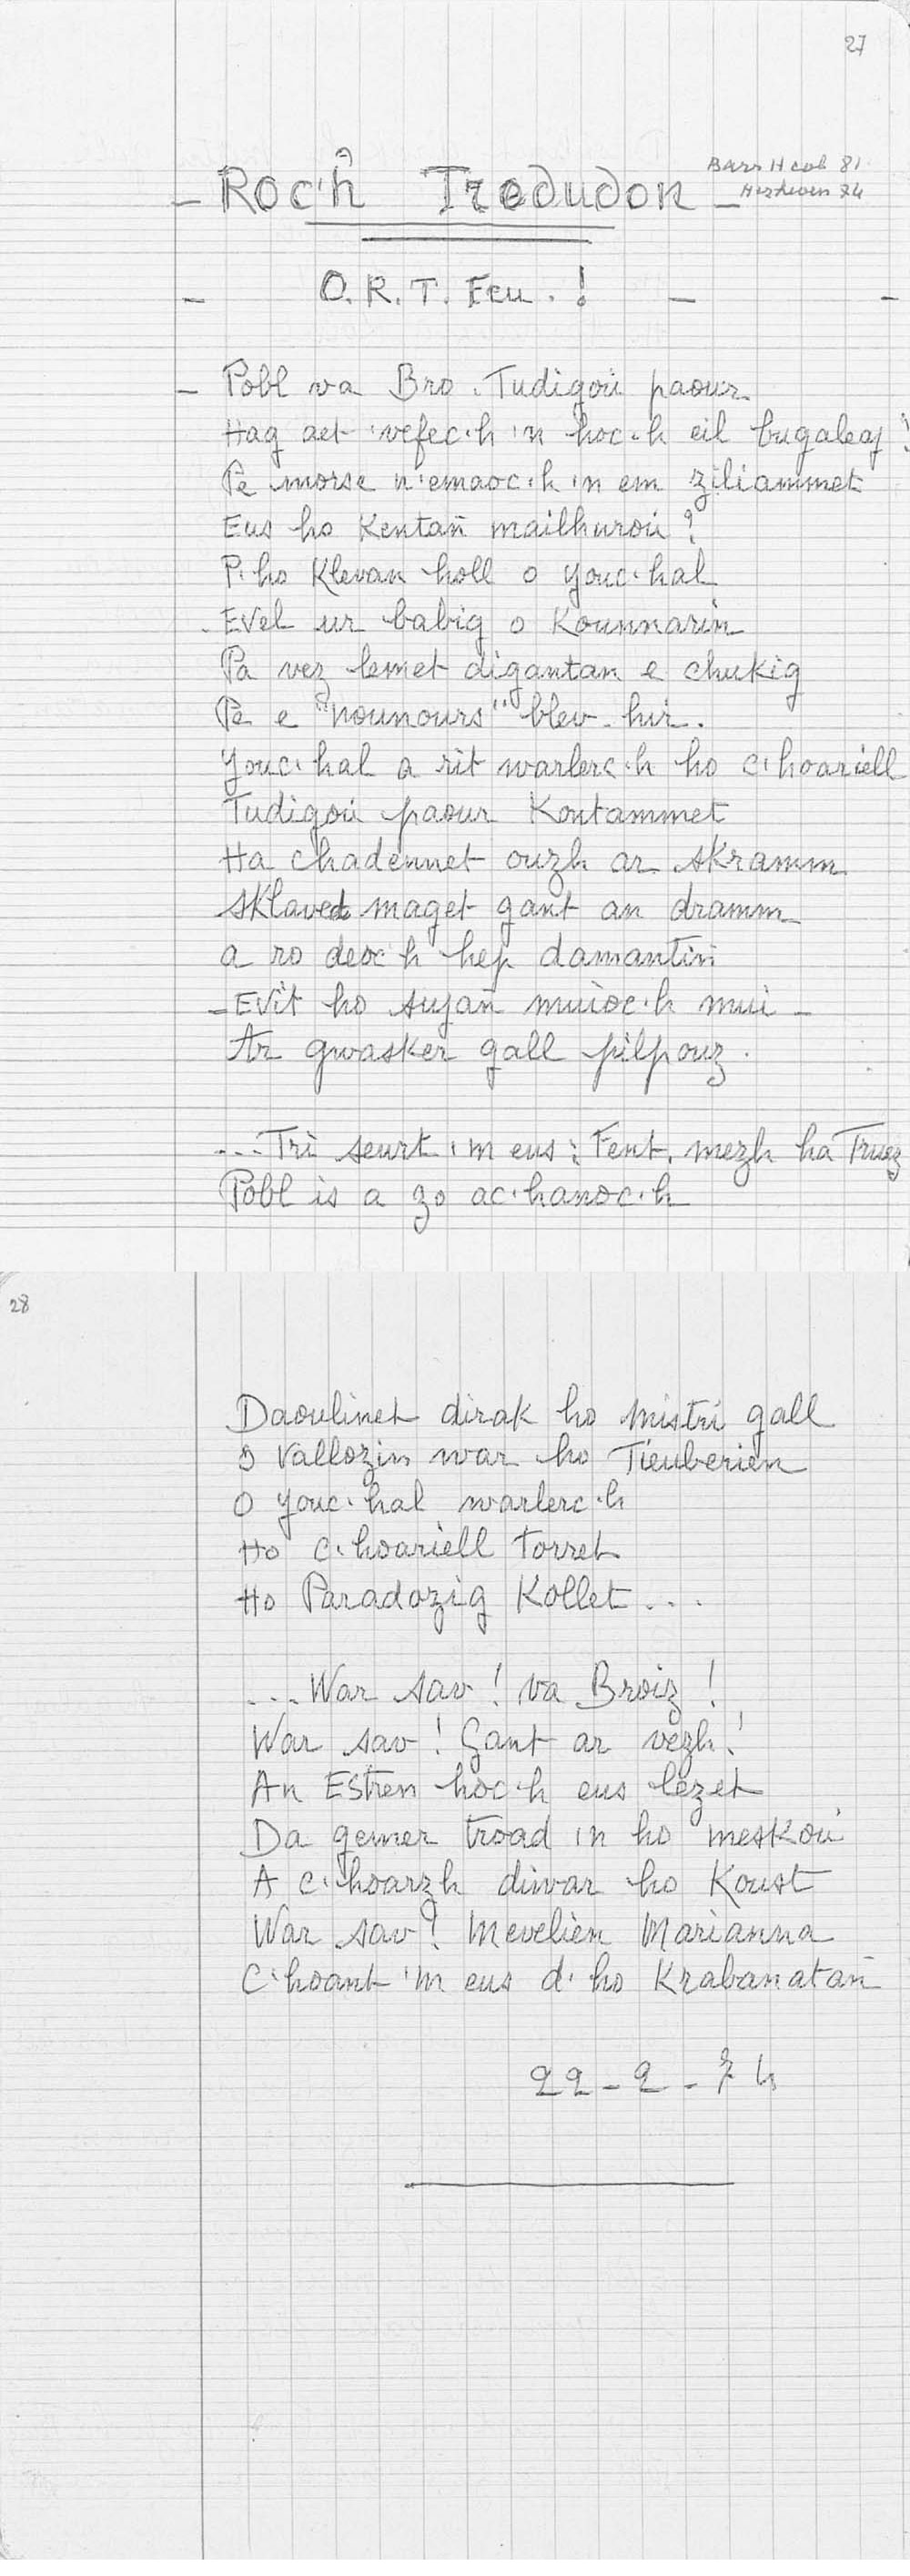 27
Barr Heol 81
- Roc'h Tredudon -
- O.R.T. Feu. ! - -
- Pobl va Bro. Tudigoù paour
Hag aet 'vefec'h 'n hoc'h eil bugaleaj ?
Pe morse n'emaoc'h 'n em ziliammet
Eus ho Kentañ mailhuroù ?
P'ho Klevan holl o youc'hal
Evel ur babig o Kounnariñ
Pa vez lemet digantan e chukig
Pe e "nounours" blev-hir.
Youc'hal a rit warlerc'h ho c'hoariell
Tudigoù paour Kontammet
Ha chadennet ouzh ar skramm
Sklaved maget gant an dramm
a ro deoc'h hep damantiñ
- Evit ho sujañ muioc'h mui -
Ar gwasker gall pilpouz.
...Tri seurt 'm eus : Fent, mezh ha Truez
Pobl is a zo ac'hanoc'h
28
Daoulinet dirak ho mistri gall
O Vallozin war ho Tieuberien
O youc'hal warlerc'h
Ho c'hoariell Torret
Ho Paradozig Kollet...
...War sav ! va Broiz !
War sav ! Gant ar vezh !
An Estren hoc'h eus lezet
Da gemer troad 'n ho meskoù
A c'hoarzh diwar ho Koust
War sav ! Mevelien Marianna
C'hoant 'm eus d'ho Krabanatañ
22-2-74